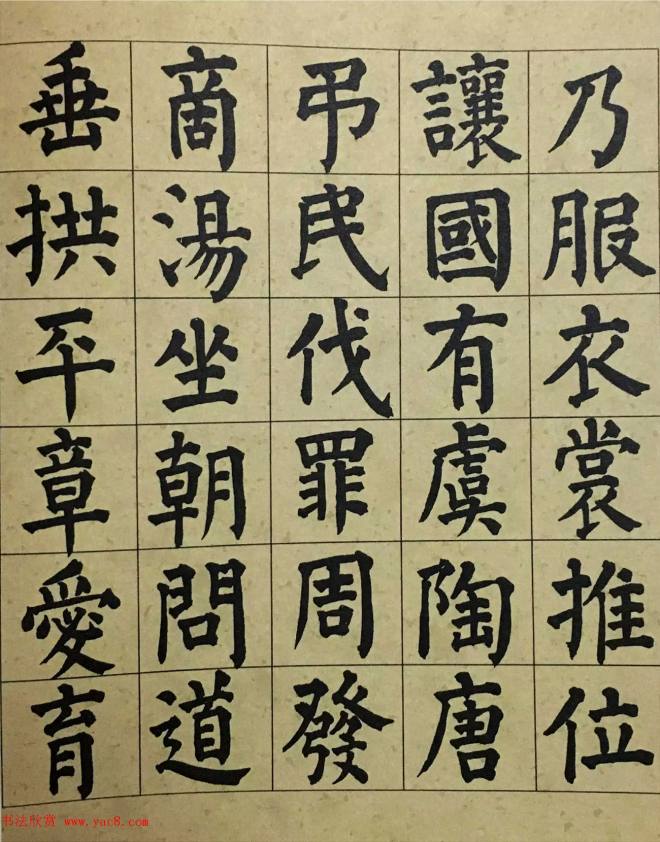 乃服衣裳推位
讓國有虞陶唐
弔民伐罪周發
商湯坐朝問道
垂拱平章愛育
书法欣赏 www.yac8.com